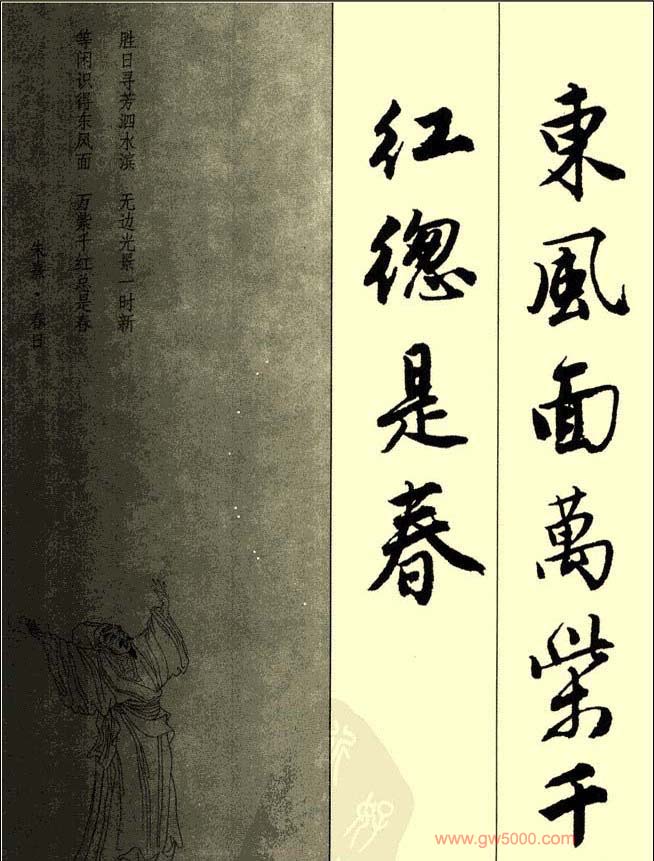 東風面萬紫千
红緫是春
胜日寻芳泗水滨 无边光景一时新
等闲识得东风面 万紫千红总是春
朱熹·春日
www.gw5000.com